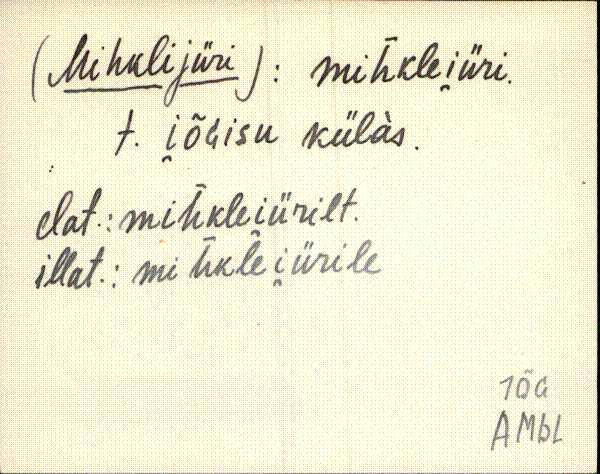 (Mihklijüri): mih̄klei̯üri.
t. i̯õGisu külàs.
elat.: mih̄klei̯ürilt.
illat.: mih̄klei̯ürile
Jõg
AMbl